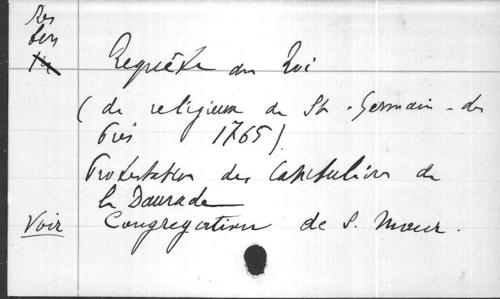 Res
ben
Requête au Roi
(de religieux de St-Germain-des
Prés 1765).
Protestation des Capitulions de
la Daurade
Voir Congregation de S. Maur.